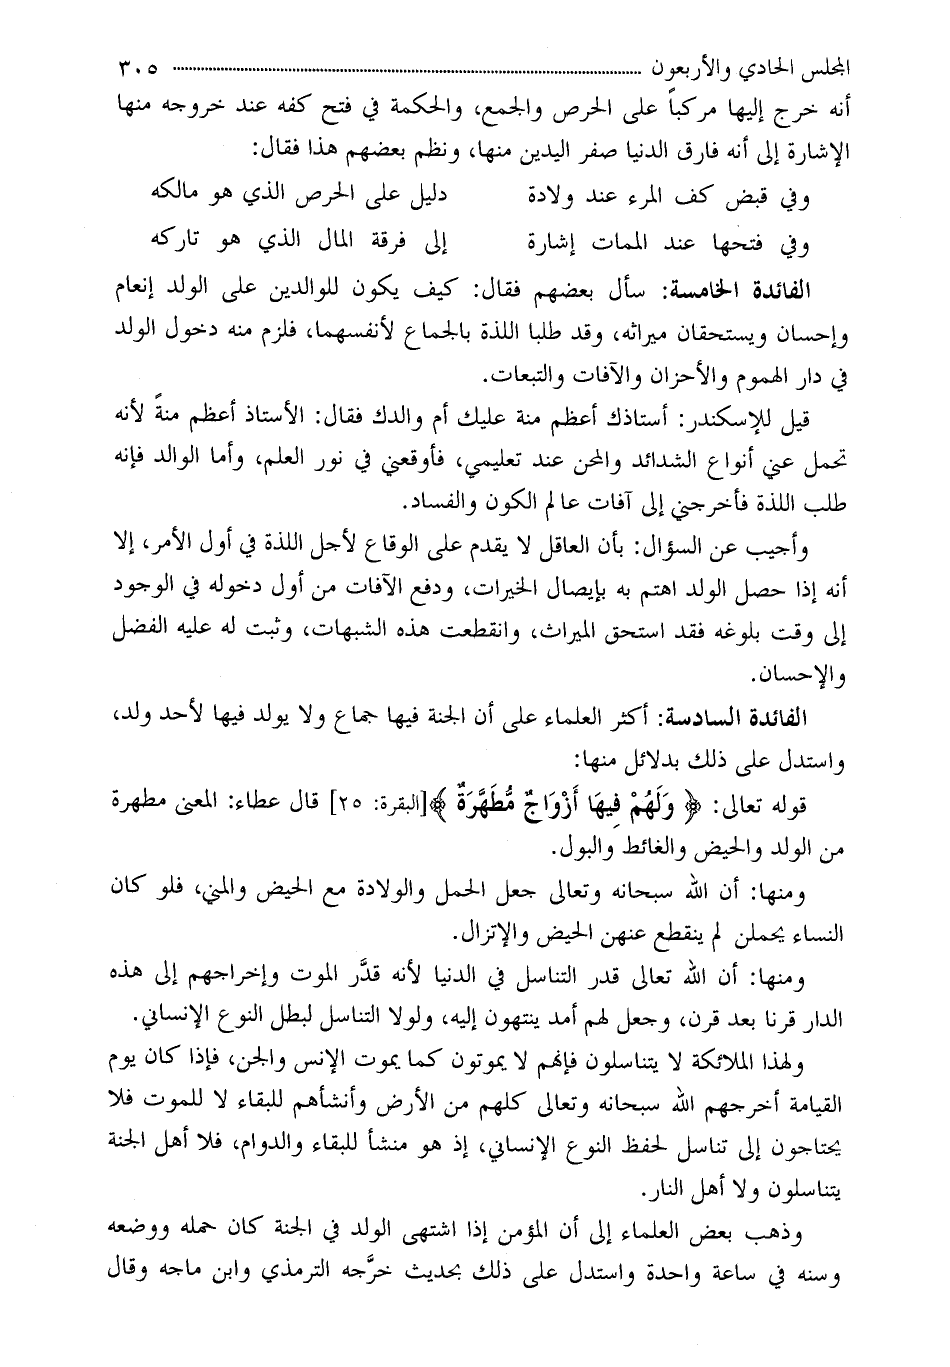 المجلس الحادي والأربعون ........................................ ٣٠٥
أنه خرج إليها مركباً على الحرص والجمع، والحكمة في فتح كفه عند خروجه منها
الإشارة إلى أنه فارق الدنيا صفر اليدين منها، ونظم بعضهم هذا فقال:
وفي قبض كف المرء عند ولادة دليل على الحرص الذي هو مالكه
وفي فتحها عند الممات إشارة إلى فرقة المال الذي هو تاركه
الفائدة الخامسة: سأل بعضهم فقال: كيف يكون للوالدين على الولد إنعام
وإحسان ويستحقان ميراثه، وقد طلبا اللذة بالجماع لأنفسهما، فلزم منه دخول الولد
في دار الهموم والأحزان والآفات والتبعات.
قيل للإسكندر: أستاذك أعظم منة عليك أم والدك فقال: الأستاذ أعظم منةً لأنه
تحمل عني أنواع الشدائد والمحن عند تعليمي، فأوقعني في نور العلم، وأما الوالد فإنه
طلب اللذة فأخرجني إلى آفات عالم الكون والفساد.
وأجيب عن السؤال: بأن العاقل لا يقدم على الوقاع لأجل اللذة في أول الأمر، إلا
أنه إذا حصل الولد اهتم به بإيصال الخيرات، ودفع الآفات من أول دخوله في الوجود
إلى وقت بلوغه فقد استحق الميراث، وانقطعت هذه الشبهات، وثبت له عليه الفضل
والإحسان.
الفائدة السادسة: أكثر العلماء على أن الجنة فيها جماع ولا يولد فيها لأحد ولد،
واستدل على ذلك بدلائل منها:
قوله تعالى: ﴿ وَلَهُمْ فِيهَا أَزْوَاجٌ مُّطَهَّرَةٌ ﴾[البقرة: ٢٥] قال عطاء: المعنى مطهرة
من الولد والحيض والغائط والبول.
ومنها: أن الله سبحانه وتعالى جعل الحمل والولادة مع الحيض والمني، فلو كان
النساء يحملن لم ينقطع عنهن الحيض والإنزال.
ومنها: أن الله تعالى قدر التناسل في الدنيا لأنه قدَّر الموت وإخراجهم إلى هذه
الدار قرنا بعد قرن، وجعل لهم أمد ينتهون إليه، ولولا التناسل لبطل النوع الإنساني.
ولهذا الملائكة لا يتناسلون فإنهم لا يموتون كما يموت الإنس والجن، فإذا كان يوم
القيامة أخرجهم الله سبحانه وتعالى كلهم من الأرض وأنشأهم للبقاء لا للموت فلا
يحتاجون إلى تناسل لحفظ النوع الإنساني، إذ هو منشأ للبقاء والدوام، فلا أهل الجنة
يتناسلون ولا أهل النار.
وذهب بعض العلماء إلى أن المؤمن إذا اشتهى الولد في الجنة كان حمله ووضعه
وسنه في ساعة واحدة واستدل على ذلك بحديث خرَّجه الترمذي وابن ماجه وقال